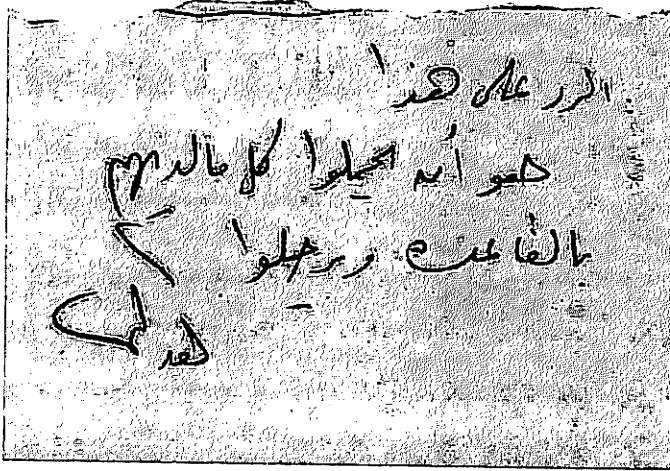 الرد على هذا
هو أن يحملوا كل ما لديهم
بالقاعده ويرحلوا